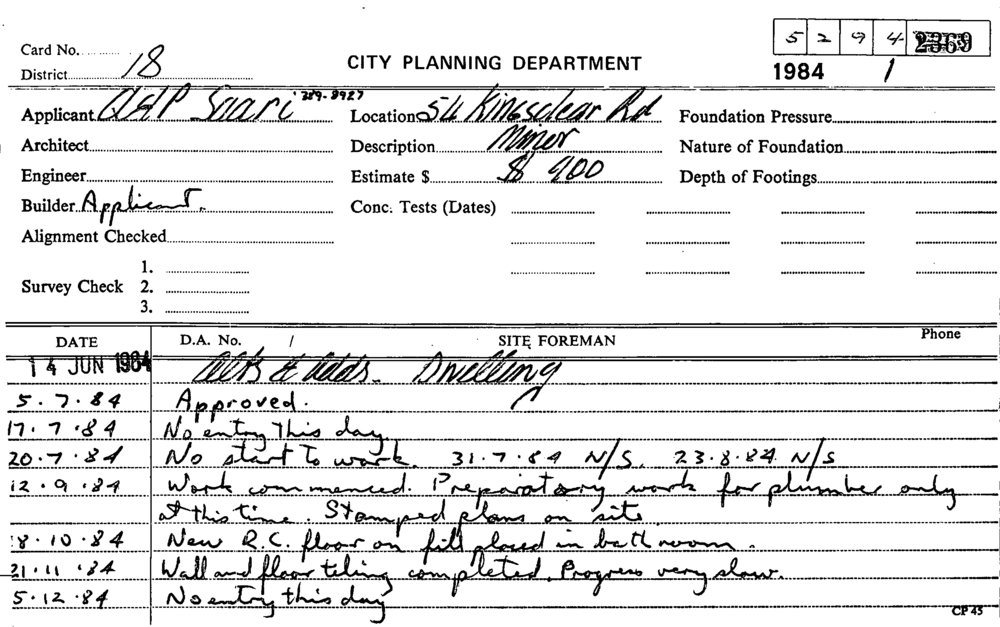 5 2 9 4 2369
Card No.
District 18
CITY PLANNING DEPARTMENT
1984 1
Applicant Q & P Saari 389-8927
Location 54 Kingsclear Rd
Foundation Pressure
Architect
Description Minor
Nature of Foundation
Engineer
Estimate $ $ 900
Depth of Footings
Builder Applicant.
Conc. Tests (Dates)
Alignment Checked
1.
Survey Check 2.
3.
DATE D.A. No. / SITE FOREMAN Phone
14 JUN 1984 Alts & Adds. Dwelling
5.7.84 Approved.
17.7.84 No entry this day
20.7.84 No start to work. 31.7.84 N/S. 23.8.84 N/S
12.9.84 Work commenced. Preparatory work for plumber only
at this time. Stamped plans on site.
8.10.84 New R.C. floor on fill placed in bathroom.
21.11.84 Wall and floor tiling completed. Progress very slow.
5.12.84 No entry this day
CP 45